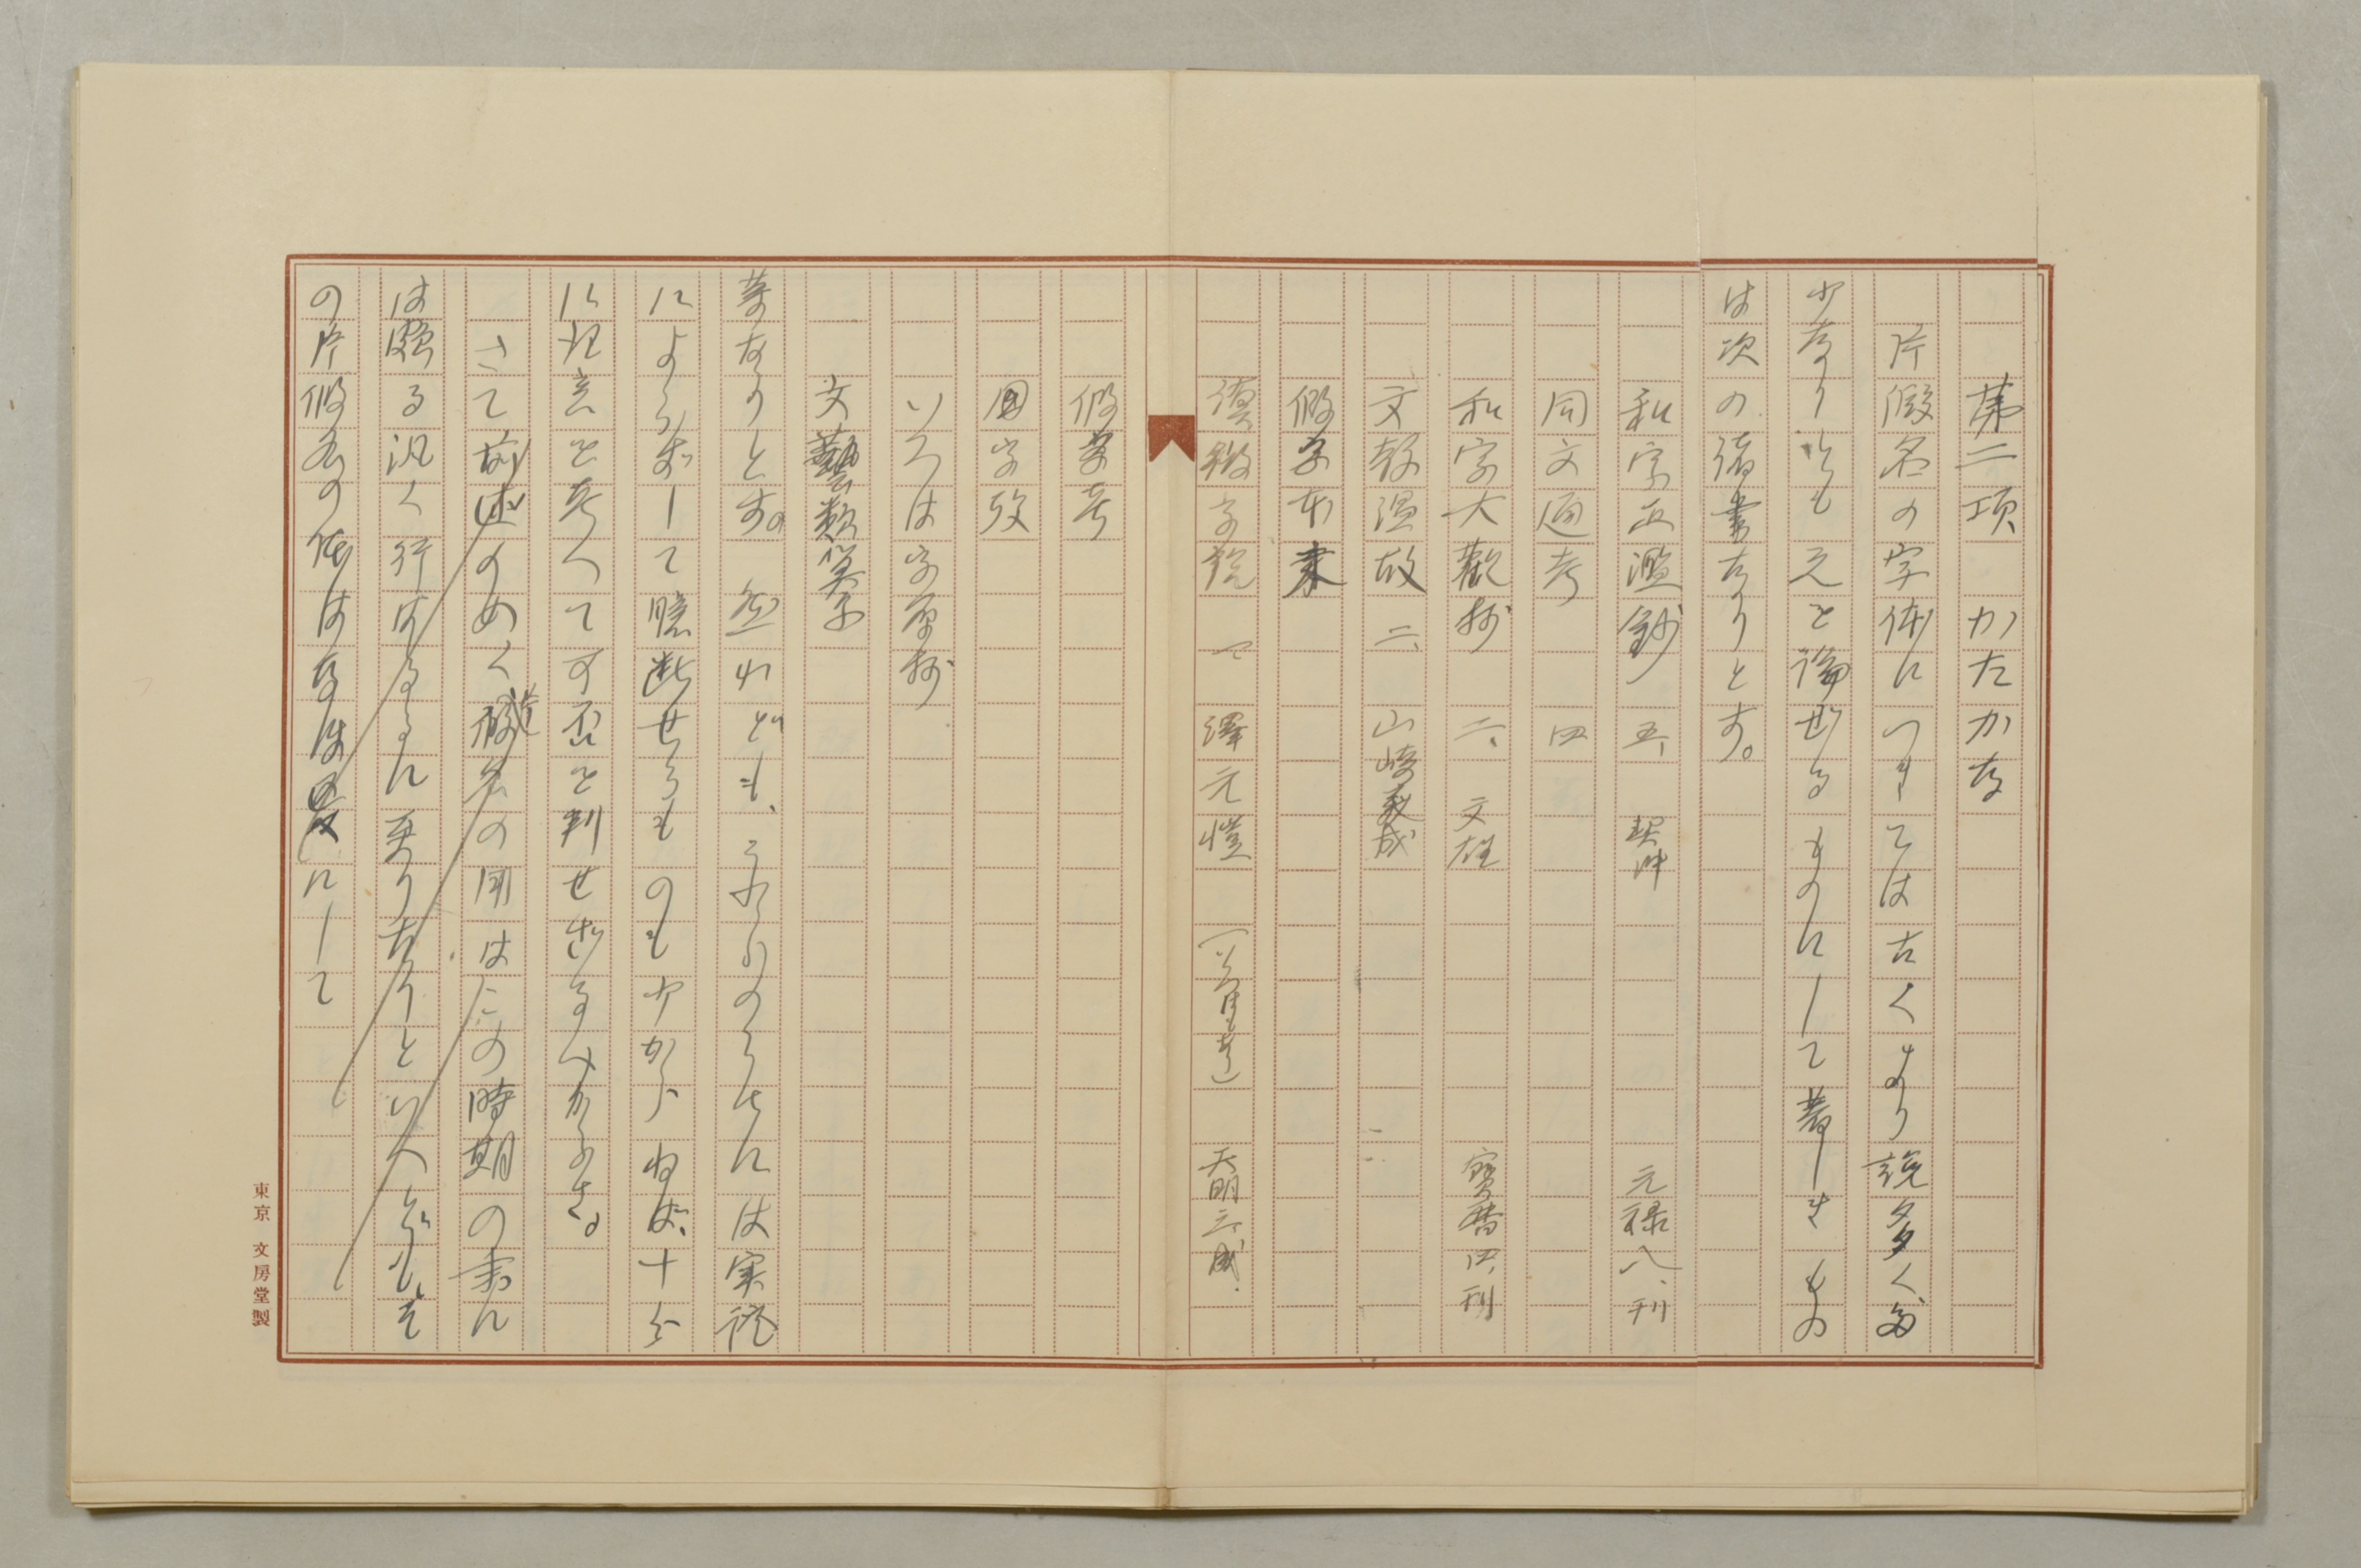 第二項 かたかな
片假名の字体につきては古くより説多く
少なりといへども之を論ぜるものにして著しきもの
は次の諸書なりとす。
和字正濫鈔 五、 契沖 元禄八、刊
同文通考 四
和字大觀抄 二、 文雄 寶暦四、刊
文教温故 二、 山崎美成
假字本末
漢 字 一 澤元愷 天明三、
假字考
國字攷
いろは字原抄
文藝類纂
等なりとす。然れども、これらのうちには実証
によらずして臆断せらるゝものも少からねば、十分
に を考へて可否を判せざるべからず。
さて前述のめく 假名の用はこの時期の末に
は 汎く行はるるに至りたりといへども、そ
の片假名の体はなほ にして
東京 文房堂製